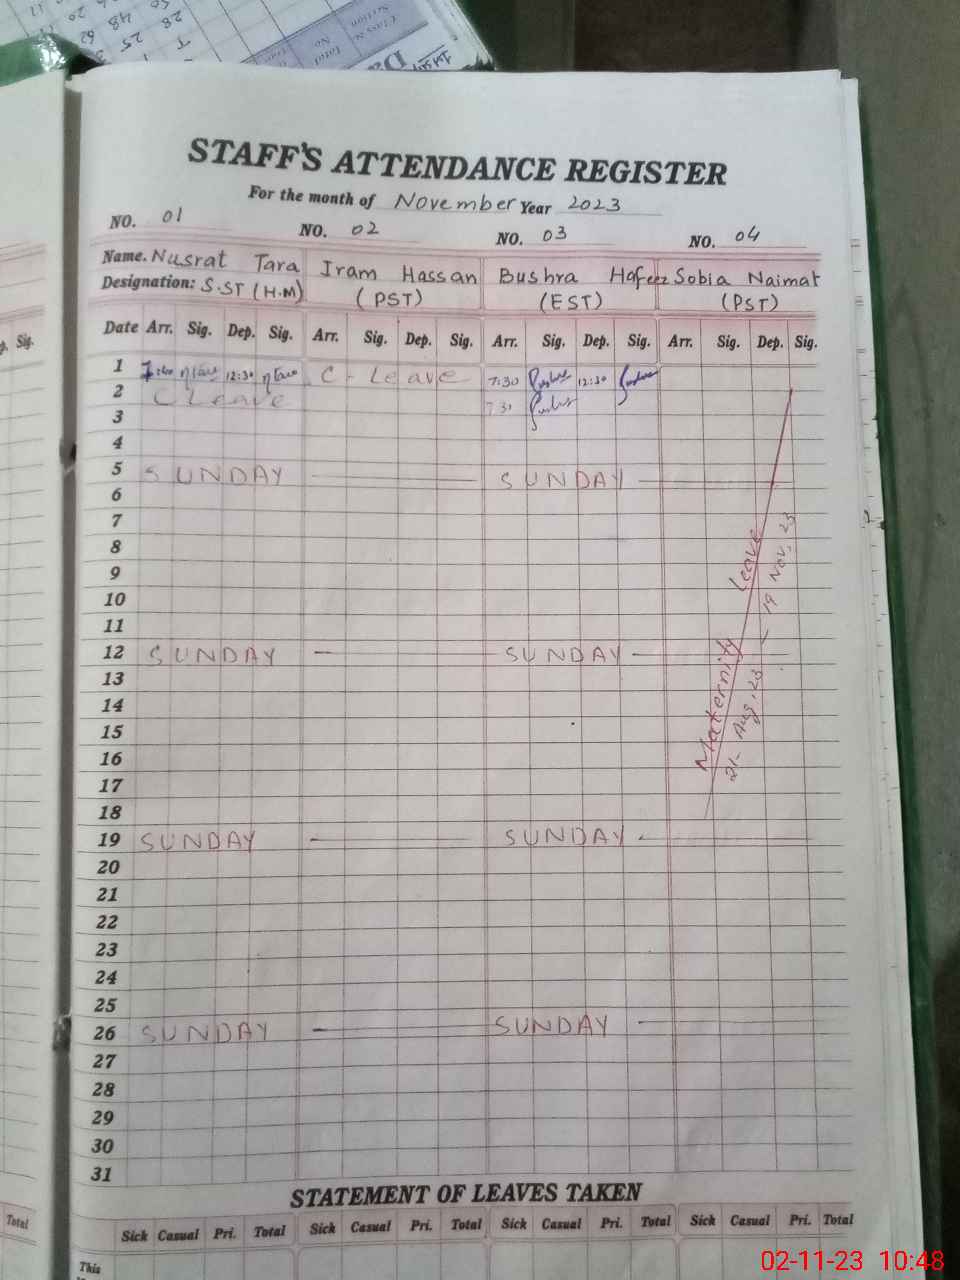 STAFF'S ATTENDANCE REGISTER
For the month of November Year 2023
NO. 01 NO. 02 NO. 03 NO. 04
Name. Nusrat Tara Iram Hassan Bushra Hafeez Sobia Naimat
Designation: S.ST (H.M) (PST) (EST) (PST)
Date Arr. Sig. Dep. Sig. Arr. Sig. Dep. Sig. Arr. Sig. Dep. Sig. Arr. Sig. Dep. Sig.
1 12:30 C-Leave 7:30 12:30
2 C Leave 7 31
3
4
5 SUNDAY SUNDAY
6
7
8
9
10
11
12 SUNDAY — SUNDAY —
13
14
15
16
17
18
19 SUNDAY - SUNDAY -
20
21
22
23
24
25
26 SUNDAY - SUNDAY -
27
28
29
30
31
Maternity Leave
21- Aug, 23 — 19 Nov, 23
STATEMENT OF LEAVES TAKEN
Sick Casual Pri. Total Sick Casual Pri. Total Sick Casual Pri. Total Sick Casual Pri. Total
This
Sig.
Total
02-11-23 10:48